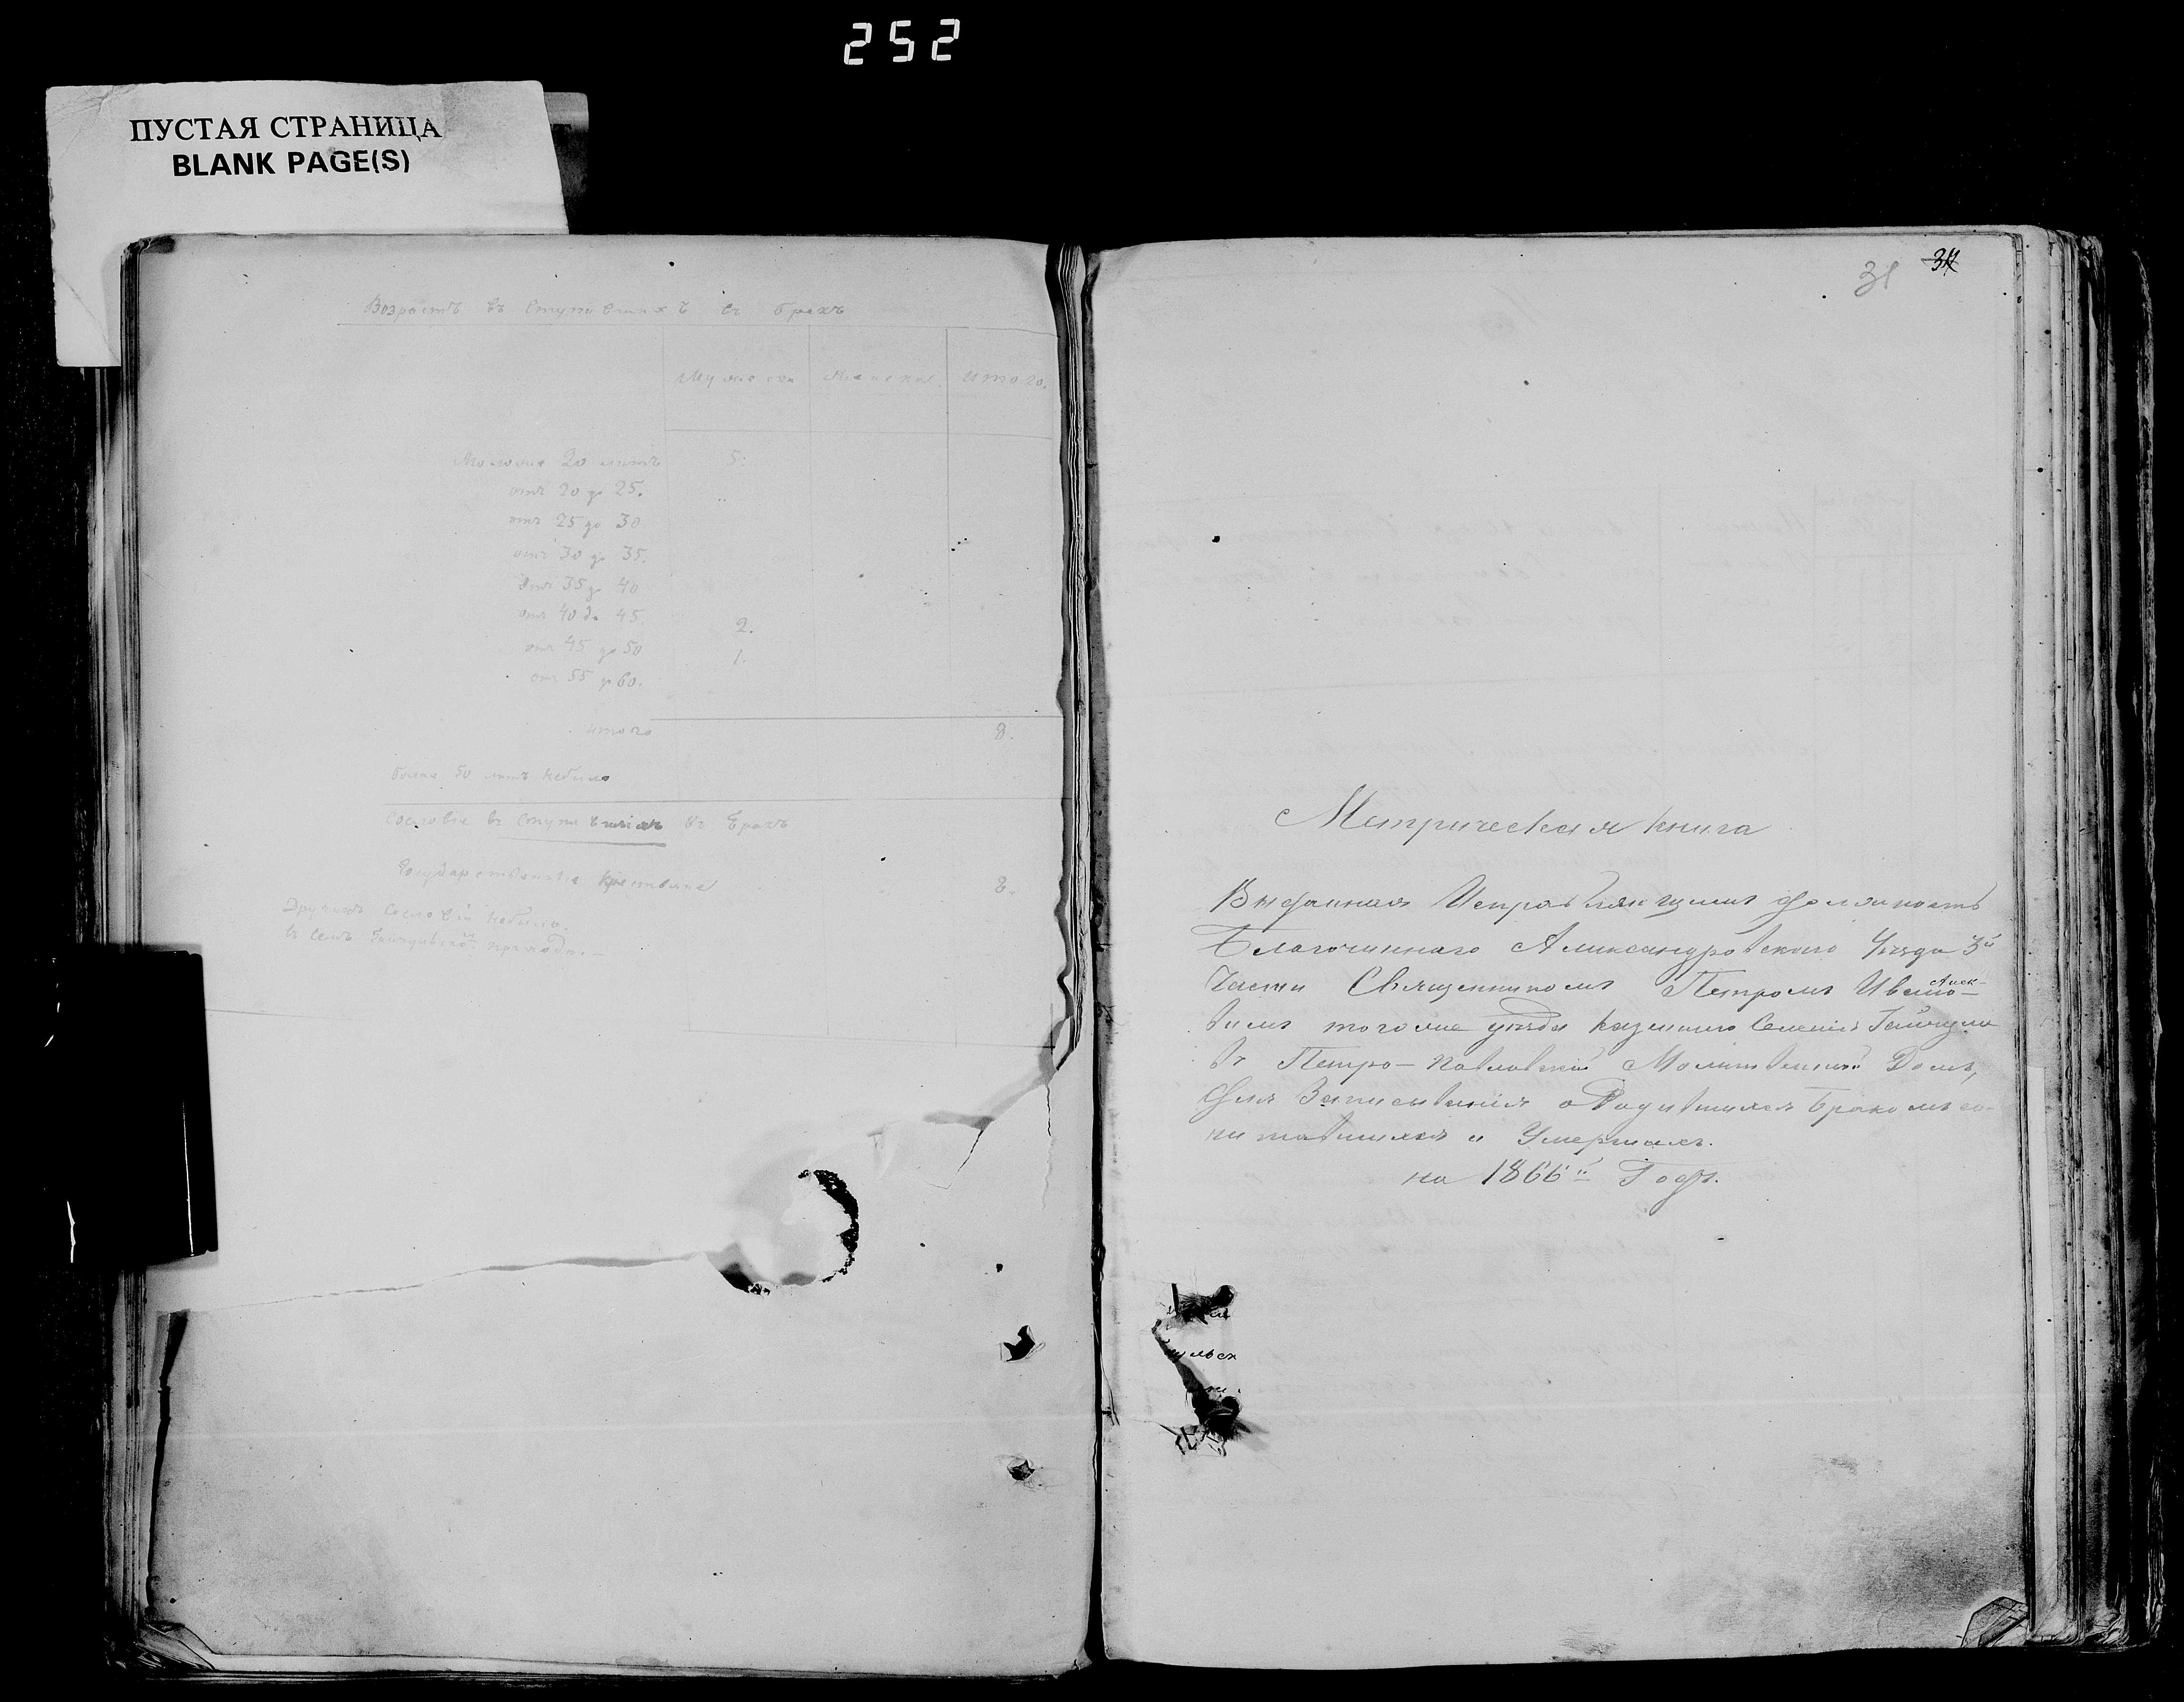 252
ПУСТАЯ СТРАНИЦА
BLANK PAGE(S)
Возрастъ въ ступившихъ въ бракъ
Мужеска Женска итого.
Моложе 20 летъ 5.
отъ 20 до 25.
отъ 25 до 30
отъ 30 до 35.
отъ 35 до 40
отъ 40 до 45. 2.
отъ 45 до 50 1.
отъ 55 до 60.
итого 8.
более 50 летъ небыло
Сословіе въ ступившихъ въ Бракъ
Государственные крестьяне 8.
Другихъ сословій небыло.
въ семъ приходе.
31 34
Метрическая книга
Выданная Исправляющимъ должность
Благочиннаго Александровскаго Уезда 3й
Части Священникомъ Петромъ
тогоже уезда казеннаго Селенія Гайчула
въ Петро-Павловскій Молитвенный Домъ,
для Записыванія о Родившихся Бракомъ со-
читавшихся и Умершихъ.
на 1866й Годъ.